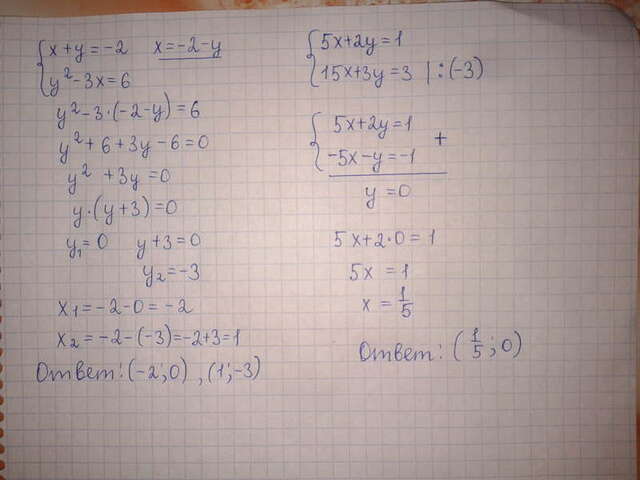 {x+y=-2 x=-2-y
y²-3x=6
y²-3·(-2-y)=6
y²+6+3y-6=0
y²+3y=0
y·(y+3)=0
y₁=0 y+3=0
y₂=-3
x₁=-2-0=-2
x₂=-2-(-3)=-2+3=1
Ответ: (-2;0), (1;-3)
{5x+2y=1
15x+3y=3 |:(-3)
{5x+2y=1 +
-5x-y=-1
y=0
5x+2·0=1
5x=1
x=1/5
Ответ: (1/5;0)